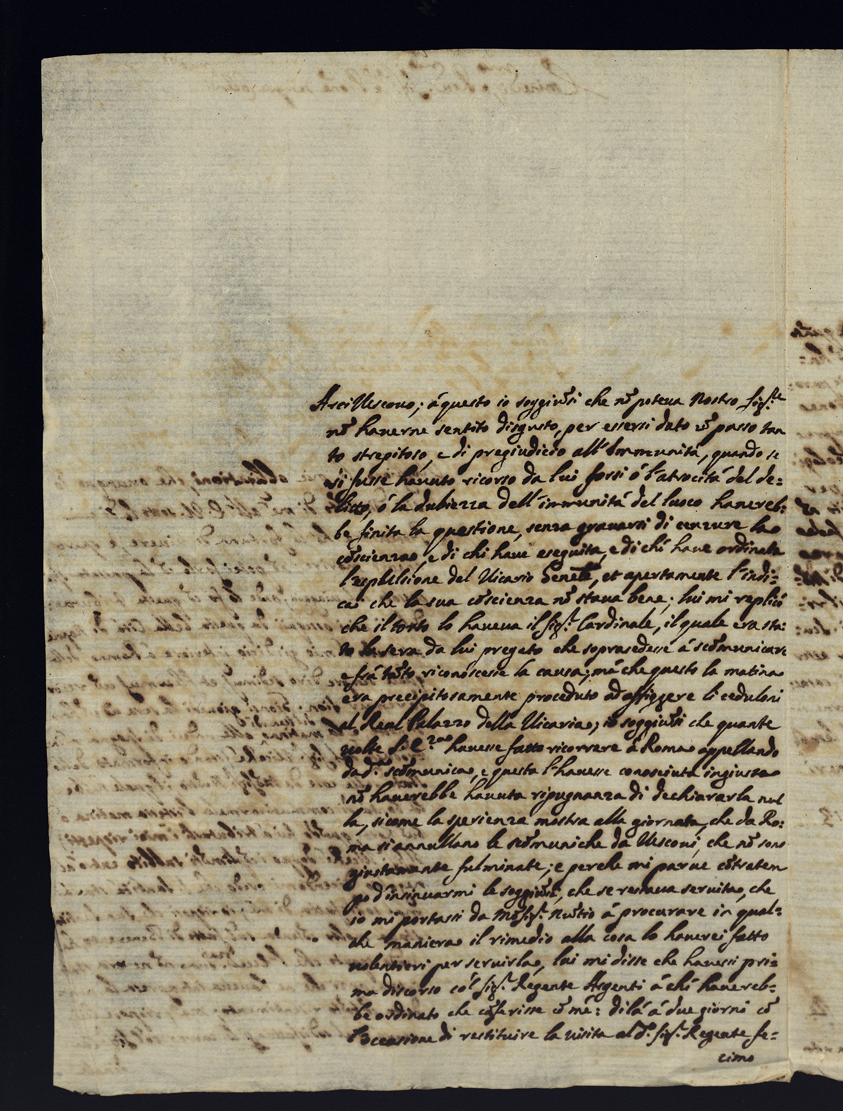 Arcivescovo; á questo io soggiũsi che nõ poteua Nostro Sig.re
nõ hauerne sentito disgusto, per essersi dato ũ passo tan
to strepitoso, e di pregiudicio all'Immunitá, quando se
si fusse hauuto ricorso da lui forsi ó l'atrocitá del de-
litto, ó la dubiezza dell'immunitá del luoco hauereb-
be finita la questione, senza grauarsi di cenzure la
cõscienza, e di chi haue eseguita, e di chi haue ordinata
l'espulsione del Vicario Genele, et apertamente l'indi-
cai che la sua cõscienza nõ staua bene; lui mi replicó
che il torto lo haueua il Sig.r Cardinale, il quale era sta-
to la sera da lui pregato che soprasedese á scõmunicare
e frá tãto riconoscesse la causa; má che questo la matina
era precipitosamente proceduto ad affiggere li ceduloni
al Real Palazzo della Vicaria; io soggiũsi che quante
volte S. E.za hauesse fatto ricorrere á Roma appellando
da d.a scõmunica, e questa l'hauesse conosciuta ingiusta
nõ hauerebbe hauuta ripugnanza di dechiararla nul
la, sicome la sperienza mostra alla giornata, che da Ro-
ma si annullano le scõmuniche da Vesconi, che nõ sono
giustamente fulminate; e perche mi parue cõtratem
po d'insinuarmi le soggiũsi, che se restaua seruita, che
io mi portassi da Mõsig.r Nũtio á procurare in qual-
che maniera il rimedio alla cosa lo hauerei fatto
uolentieri per seruirla, lui mi disse che hauessi pri-
ma discorso co'l Sig.r Regente Argenti á chi hauereb-
be ordinato che cõferisse cõ mé: di lá á due giorni cõ
l'occasione di restituire la visita al d.o Sig.r Regente fe-
cimo